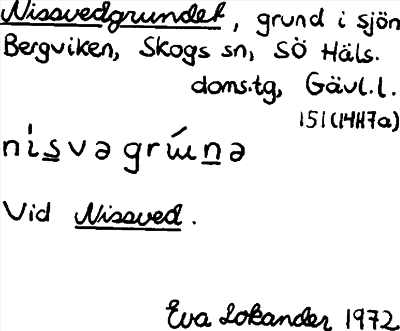 Nissvedgrundet, grund i sjön
Bergviken, Skogs sn, SÖ Häls.
doms.tg, Gävl.l.
151(14H7a)
nísvə grúunə
Vid Nissved.
Eva Lokander 1972